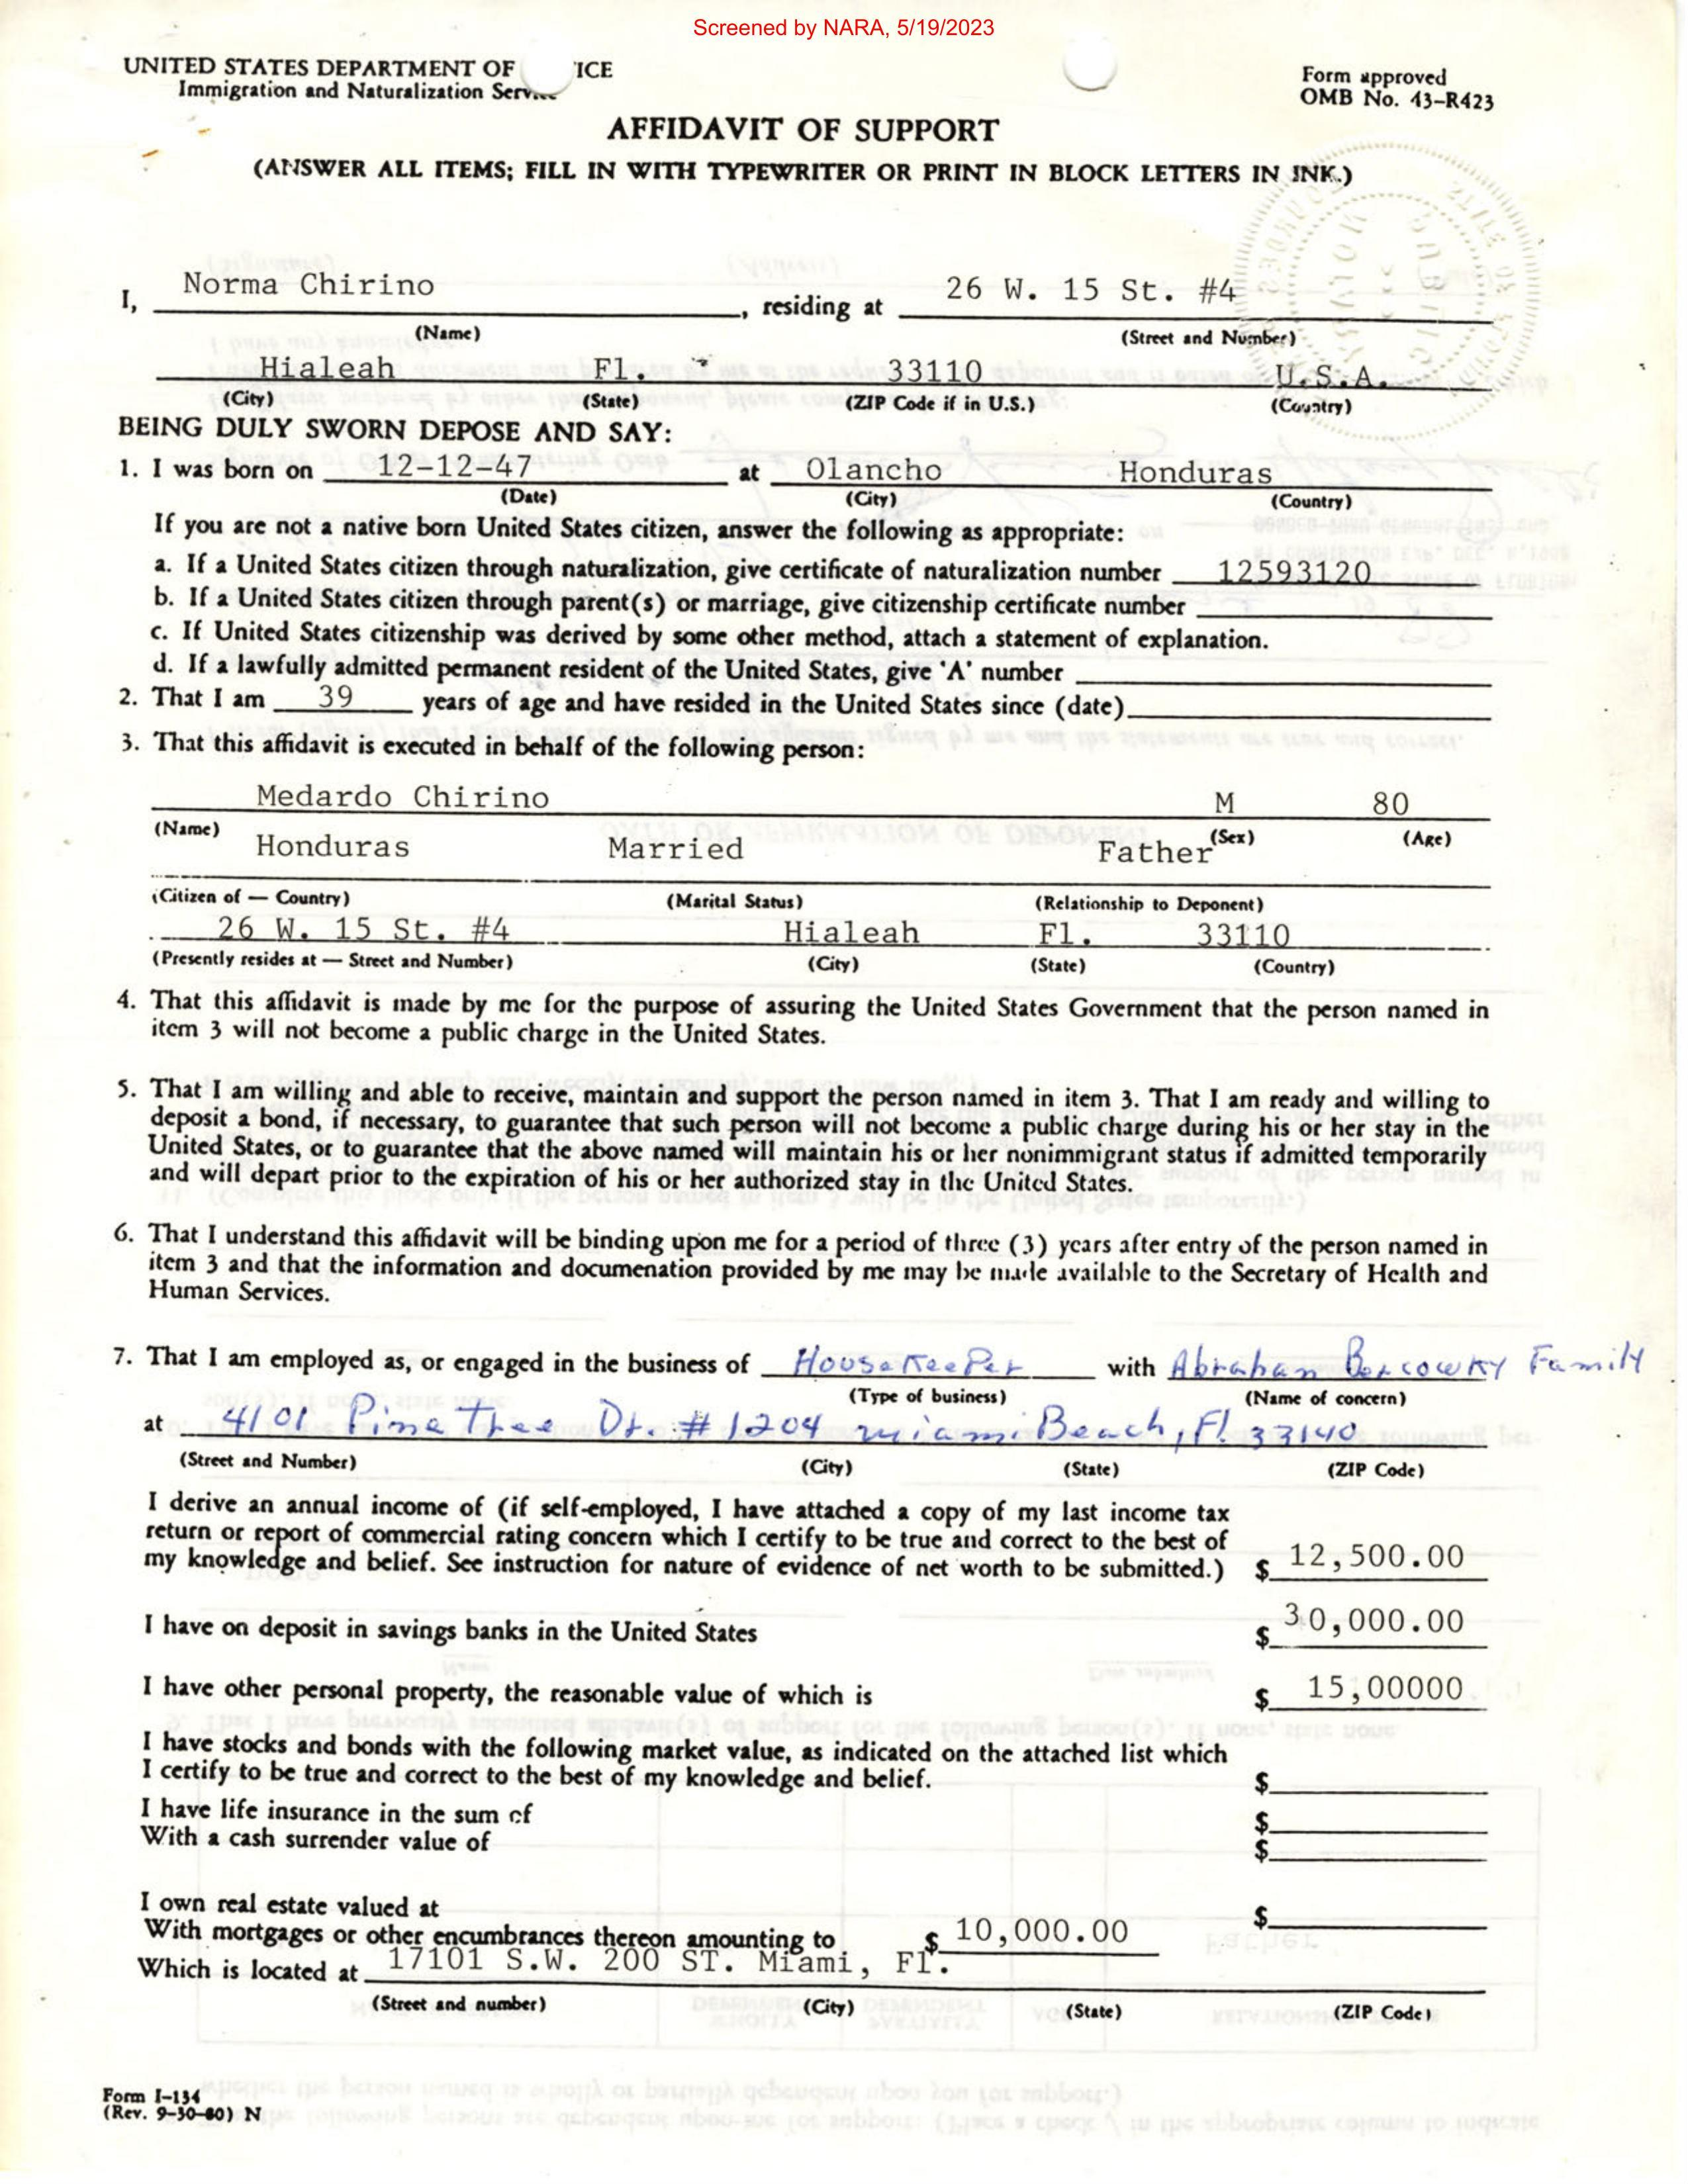 Screened by NARA, 5/19/2023
UNITED STATES DEPARTMENT OF ICE
Immigration and Naturalization
Form approved
OMB No. 43-R423
AFFIDAVIT OF SUPPORT
(ANSWER ALL ITEMS; FILL IN WITH TYPEWRITER OR PRINT IN BLOCK LETTERS IN INK.)
I, Norma Chirino, residing at 26 W. 15 St. #4
(Name) (Street and Number)
Hialeah Fl. 33110 U.S.A.
(City) (State) (ZIP Code if in U.S.) (Country)
BEING DULY SWORN DEPOSE AND SAY:
1. I was born on 12-12-47 at Olancho Honduras
(Date) (City) (Country)
If you are not a native born United States citizen, answer the following as appropriate:
a. If a United States citizen through naturalization, give certificate of naturalization number 12593120
b. If a United States citizen through parent(s) or marriage, give citizenship certificate number
c. If United States citizenship was derived by some other method, attach a statement of explanation.
d. If a lawfully admitted permanent resident of the United States, give 'A' number
2. That I am 39 years of age and have resided in the United States since (date)
3. That this affidavit is executed in behalf of the following person:
Medardo Chirino M 80
(Name) (Sex) (Age)
Honduras Married Father
(Citizen of — Country) (Marital Status) (Relationship to Deponent)
26 W. 15 St. #4 Hialeah Fl. 33110
(Presently resides at — Street and Number) (City) (State) (Country)
4. That this affidavit is made by me for the purpose of assuring the United States Government that the person named in
item 3 will not become a public charge in the United States.
5. That I am willing and able to receive, maintain and support the person named in item 3. That I am ready and willing to
deposit a bond, if necessary, to guarantee that such person will not become a public charge during his or her stay in the
United States, or to guarantee that the above named will maintain his or her nonimmigrant status if admitted temporarily
and will depart prior to the expiration of his or her authorized stay in the United States.
6. That I understand this affidavit will be binding upon me for a period of three (3) years after entry of the person named in
item 3 and that the information and documenation provided by me may be made available to the Secretary of Health and
Human Services.
7. That I am employed as, or engaged in the business of HouseKeeper with Abraham Bercowky Family
(Type of business) (Name of concern)
at 4101 Pine Tree Dr. #1204 Miami Beach, Fl. 33140
(Street and Number) (City) (State) (ZIP Code)
I derive an annual income of (if self-employed, I have attached a copy of my last income tax
return or report of commercial rating concern which I certify to be true and correct to the best of
my knowledge and belief. See instruction for nature of evidence of net worth to be submitted.) $ 12,500.00
I have on deposit in savings banks in the United States $ 30,000.00
I have other personal property, the reasonable value of which is $ 15,00000
I have stocks and bonds with the following market value, as indicated on the attached list which
I certify to be true and correct to the best of my knowledge and belief. $
I have life insurance in the sum of $
With a cash surrender value of $
I own real estate valued at $
With mortgages or other encumbrances thereon amounting to $ 10,000.00
Which is located at 17101 S.W. 200 ST. Miami, Fl.
(Street and number) (City) (State) (ZIP Code)
Form I-134
(Rev. 9-30-80) N